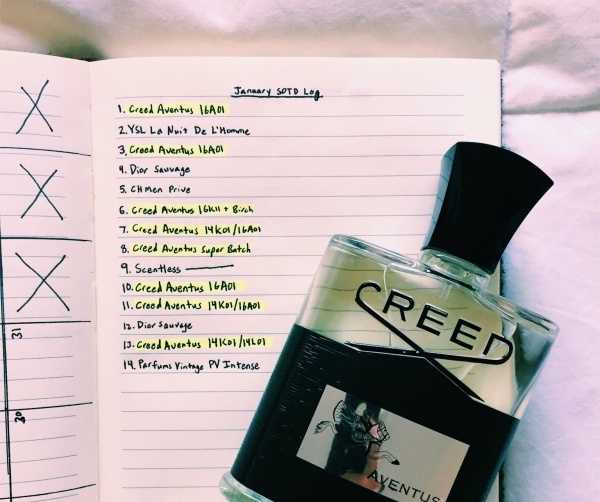 January SOTD Log
1. Creed Aventus 16A01
2. YSL La Nuit De L'Homme
3. Creed Aventus 16A01
4. Dior Sauvage
5. CH Men Prive
6. Creed Aventus 16K11 + Birch
7. Creed Aventus 14K01/16A01
8. Creed Aventus Super Batch
9. Scentless
10. Creed Aventus 16A01
11. Creed Aventus 14K01/16A01
12. Dior Sauvage
13. Creed Aventus 14K01/14L01
14. Parfums Vintage PV Intense
31
CREED
AVENTUS